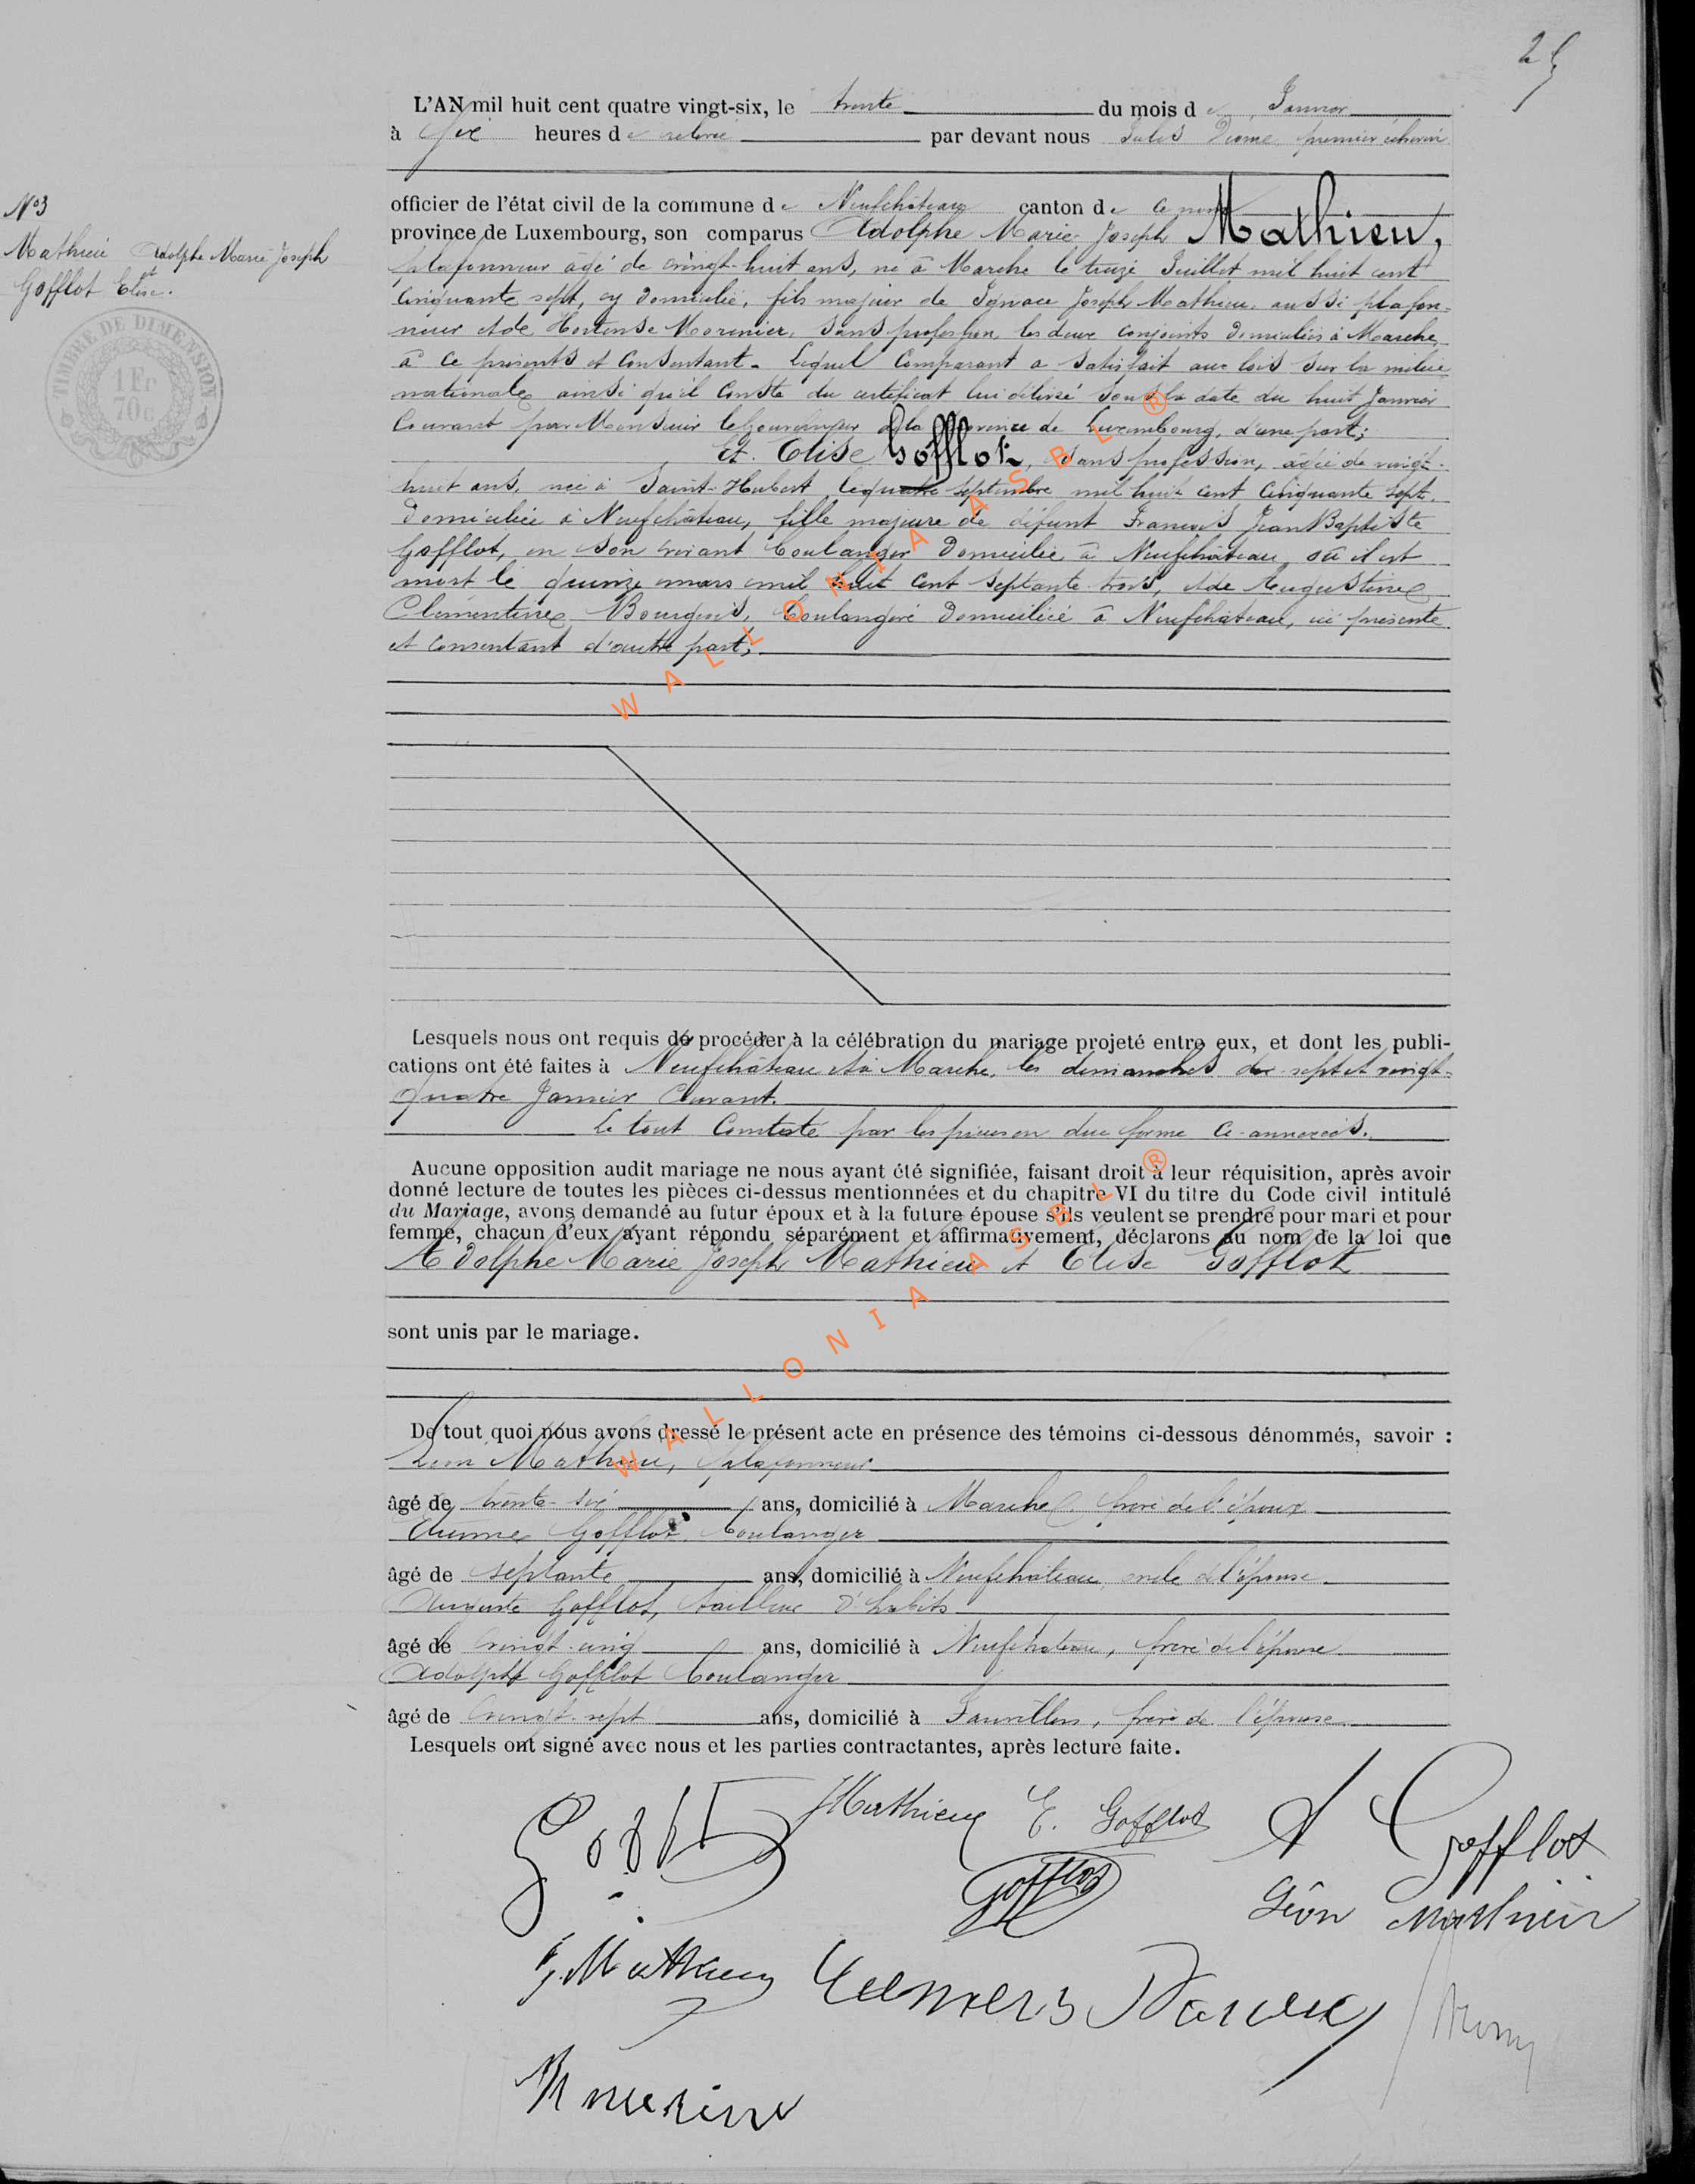 25
L'AN mil huit cent quatre vingt-six, le trente du mois de Janvier
à six heures de relevée par devant nous Jules premier échevin
officier de l'état civil de la commune de Neufchâteau canton de ce nom
province de Luxembourg, son comparus Adolphe Marie Joseph Mathieu,
N°3
Mathieu Adolphe Marie Joseph
et
Gofflot Elise.
TIMBRE DE DIMENSION
1 Fr
70c
plafonneur âgé de vingt-huit ans, né à Marche le treize Juillet mil huit cent
cinquante sept, y domicilié, fils majeur de Ignace Joseph Mathieu, aussi plafon-
neur et de Hortense sans profession, les deux conjoints domiciliés à Marche,
à ce présents et consentant. Lequel comparant a satisfait aux lois sur la milice
nationale ainsi qu'il conste du certificat lui délivré sous la date du huit Janvier
courant par Monsieur le Gouverneur de la Province de Luxembourg, d'une part;
Et Elise Gofflot, sans profession, âgée de vingt-
huit ans, née à Saint-Hubert le quatre septembre mil huit cent cinquante sept,
domiciliée à Neufchâteau, fille majeure de défunt François Jean Baptiste
Gofflot, en son vivant boulanger domicilié à Neufchâteau, où il est
mort le quinze mars mil huit cent septante trois, et de Augustine
Clémentine Bourgeois, boulangère domiciliée à Neufchâteau, ici présente
et consentant d'autre part;
WALLONIA ASBL ®
Lesquels nous ont requis de procéder à la célébration du mariage projeté entre eux, et dont les publi-
cations ont été faites à Neufchâteau et à Marche, les dimanches dix-sept et vingt-
quatre Janvier courant.
Le tout constaté par les pièces en due forme ci-annexées.
Aucune opposition audit mariage ne nous ayant été signifiée, faisant droit à leur réquisition, après avoir
donné lecture de toutes les pièces ci-dessus mentionnées et du chapitre VI du titre du Code civil intitulé
du Mariage, avons demandé au futur époux et à la future épouse s'ils veulent se prendre pour mari et pour
femme, chacun d'eux ayant répondu séparément et affirmativement, déclarons au nom de la loi que
Adolphe Marie Joseph Mathieu et Elise Gofflot
sont unis par le mariage.
WALLONIA ASBL ®
De tout quoi nous avons dressé le présent acte en présence des témoins ci-dessous dénommés, savoir :
Léon Mathieu, plafonneur
âgé de trente-six ans, domicilié à Marche, frère de l'époux
Gofflot, boulanger
âgé de septante ans, domicilié à Neufchâteau, oncle de l'épouse
Auguste Gofflot, tailleur d'habits
âgé de vingt-cinq ans, domicilié à Neufchâteau, frère de l'épouse
Adolphe Gofflot boulanger
âgé de vingt-sept ans, domicilié à Fauvillers, frère de l'épouse
Lesquels ont signé avec nous et les parties contractantes, après lecture faite.
Mathieu E. Gofflot A Gofflot
Gofflot Léon Mathieu
Mathieu